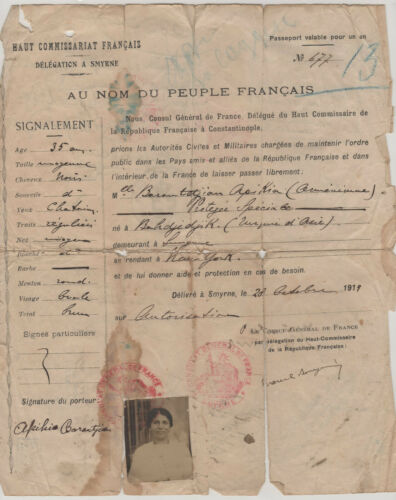 HAUT COMMISSARIAT FRANÇAIS
DÉLÉGATION A SMYRNE
Passeport valable pour un an
№ 677
13
AU NOM DU PEUPLE FRANÇAIS
SIGNALEMENT
Age 35 ans
Taille moyenne
Cheveux Noirs
Sourcils dº
Yeux Chatains
Traits réguliers
Nez moyen
Bouche dº
Barbe
Menton rond
Visage Ovale
Teint Brun
Signes particuliers
Signature du porteur:
Nous Consul Général de France Délégué du Haut Commissaire de
la République Française à Constantinople,
prions les Autorités Civiles et Militaires chargées de maintenir l'ordre
public dans les Pays amis et alliés de la République Française et dans
l'intérieur de la France de laisser passer librement:
Mlle Barontdjian Apikia (Arménienne)
Protégée Spéciale
né à Bahdjidjik (Turquie d'Asie)
demeurant à Smyrne
se rendant à New York
et de lui donner aide et protection en cas de besoin.
Délivré à Smyrne, le 28 Octobre 1919
sur Autorisation
LE CONSUL GÉNÉRAL DE FRANCE
par délégation du Haut-Commissaire
de la République Française: